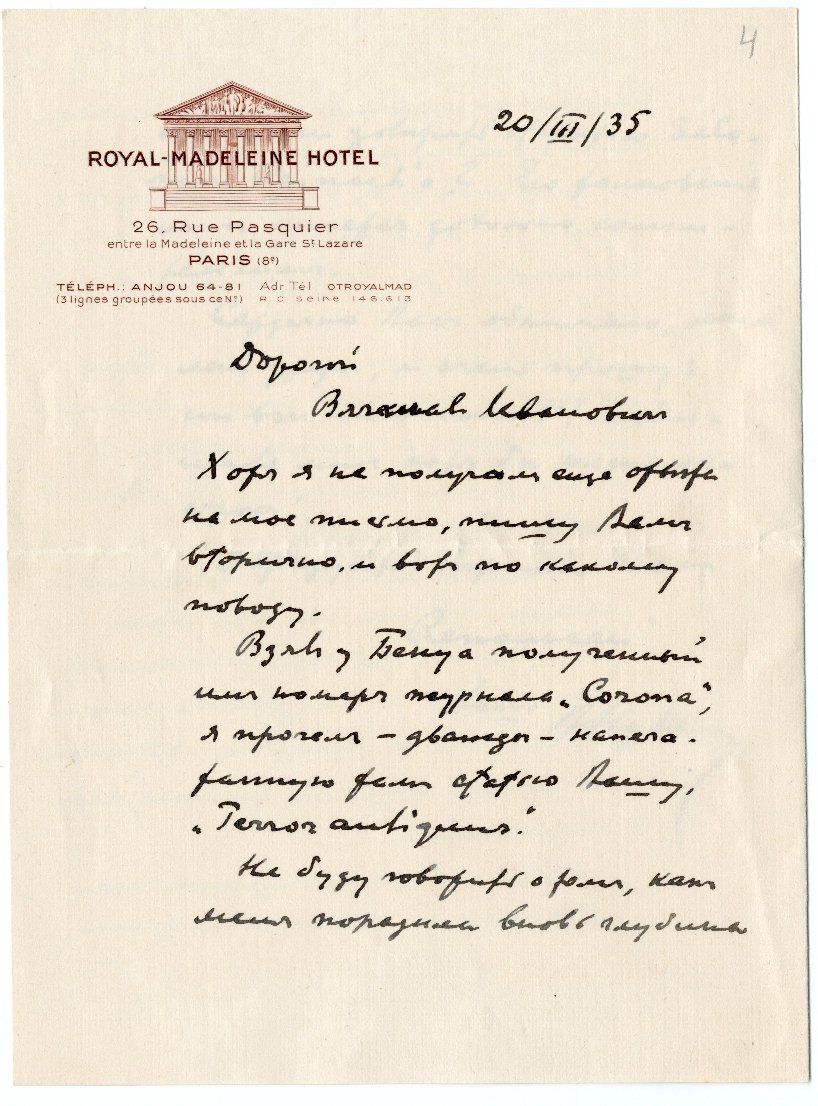 4
20/III/35
ROYAL-MADELEINE HOTEL
26, Rue Pasquier
entre la Madeleine et la Gare St Lazare
PARIS (8e)
TÉLÉPH.: ANJOU 64-81 Adr Tél OTROYALMAD
(3 lignes groupées sous ce No) R.C Seine 146.613
Дорогой
Вячеслав Иванович
Хотя я не получилъ еще отвѣта
на мое письмо, пишу Вамъ
вторично, и вотъ по какому
поводу.
Взявъ у Бенуа полученный
имъ номеръ журнала „Corona“,
я прочелъ – дважды – напеча-
танную тамъ статью Вашу,
„Terror antiquus“.
Не буду говорить о томъ, какъ
меня поразила вновь глубина